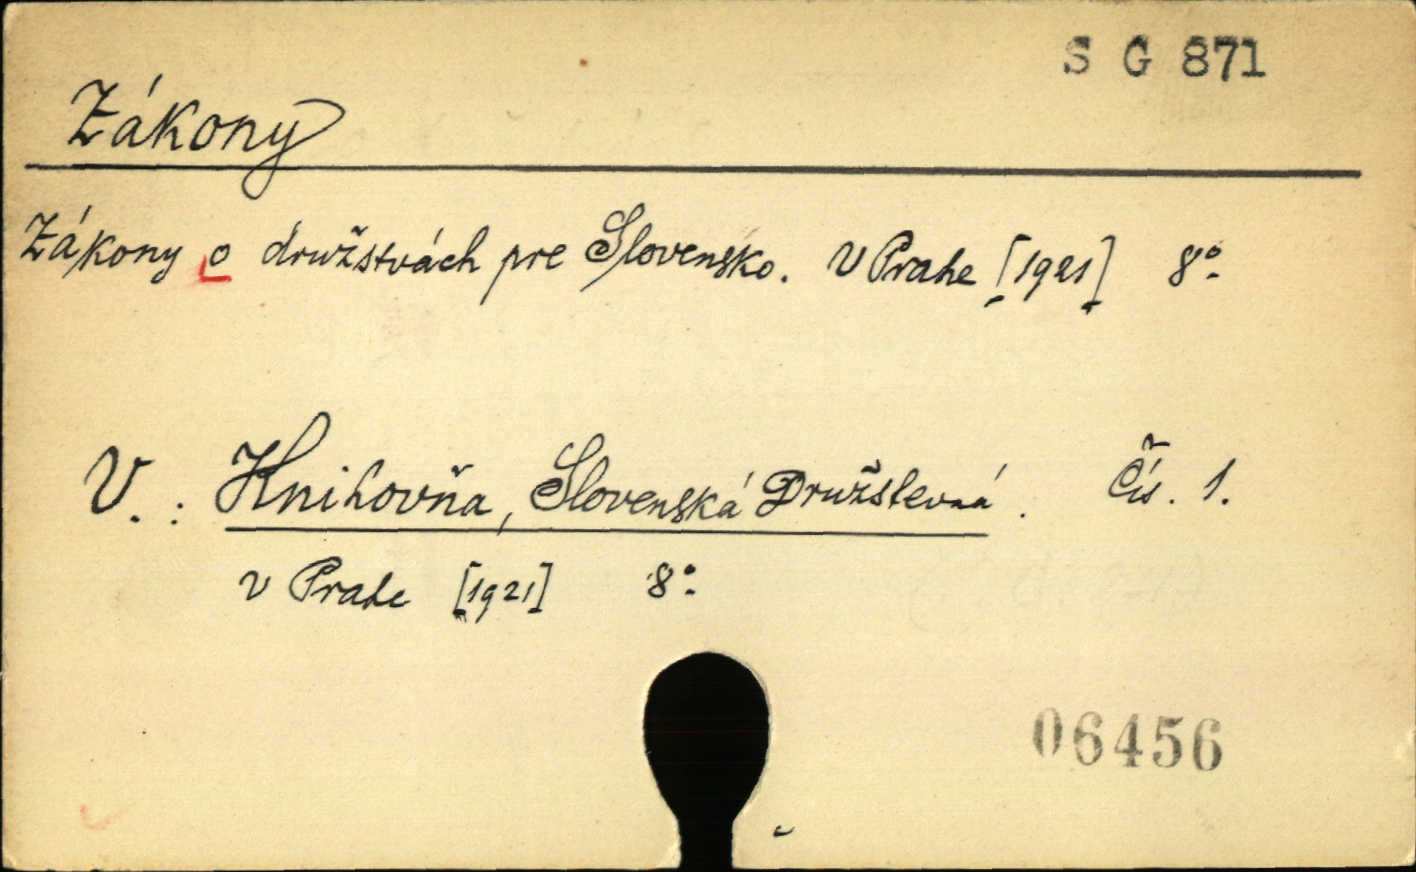 S G 871
Zákony
Zákony o družstvách pre Slovensko. V Prahe [1921] 8°.
V. : Knihovňa, Slovenská Družstevná. Čís. 1.
v Prahe [1921] 8°.
06456